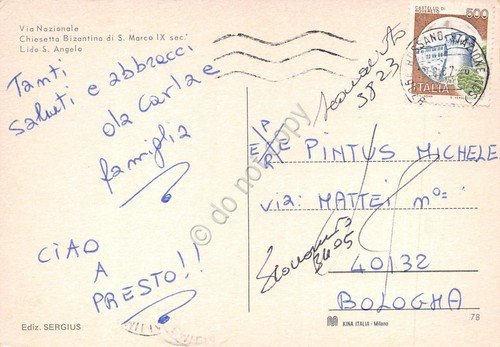 Via Nazionale
Chiesetta Bizantina di S. Marco IX sec.
Lido S. Angelo
Tanti
saluti e abbracci
da Carla e
famiglia
CIAO
A
PRESTO!!
Ediz. SERGIUS
CASTELLO DI
500
ITALIA
ROSSANO STAZIONE
Sconosciuto
3823
E/P
E/E PINTUS MICHELE
via: MATTEI n°=
Sconosciuto
3405
40132
BOLOGNA
KINA ITALIA - Milano
78
© do not copy